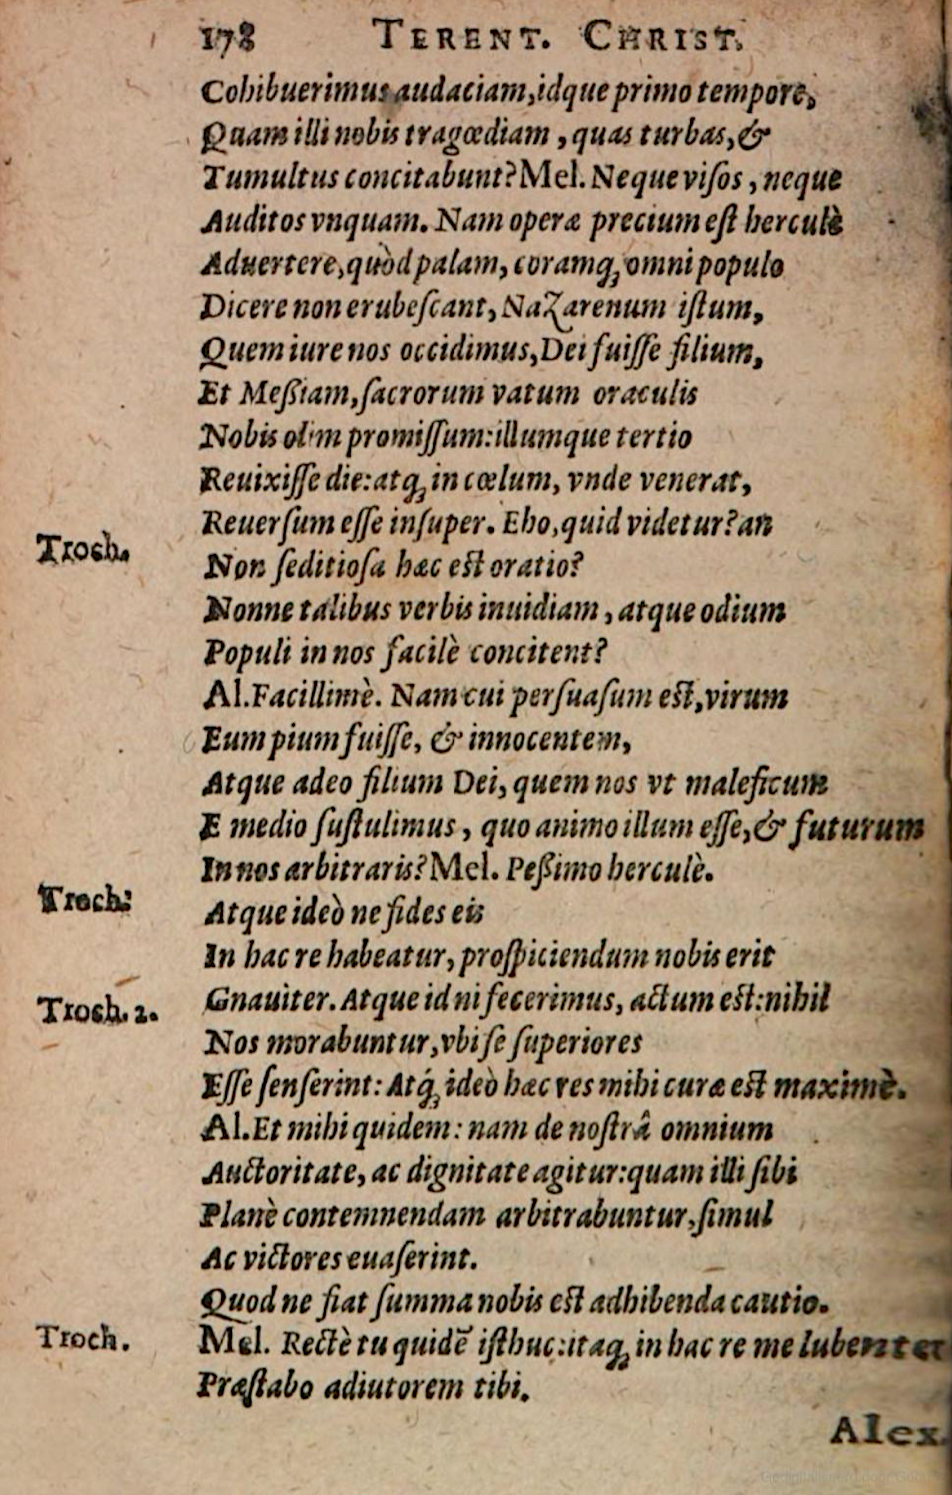 178 TERENT. CHRIST.
Cohibuerimus audaciam, idque primo tempore,
Quam illi nobis tragœdiam, quas turbas, &
Tumultus concitabunt? Mel. Neque viſos, neque
Auditos vnquam. Nam operæ precium eſt herculè
Aduertere, quòd palam, coramq; omni populo
Dicere non erubeſcant, Nazarenum iſtum,
Quem iure nos occidimus, Dei fuiſſe filium,
Et Meßiam, ſacrorum vatum oraculis
Nobis olim promiſſum: illumque tertio
Reuixiſſe die: atq; in cœlum, vnde venerat,
Reuerſum eſſe inſuper. Eho, quid videtur? an
Troch. Non ſeditioſa hæc eſt oratio?
Nonne talibus verbis inuidiam, atque odium
Populi in nos facilè concitent?
Al. Facillimè. Nam cui perſuaſum eſt, virum
Eum pium fuiſſe, & innocentem,
Atque adeo filium Dei, quem nos vt maleficum
E medio ſuſtulimus, quo animo illum eſſe, & futurum
In nos arbitraris? Mel. Peßimo herculè.
Troch. Atque ideò ne fides eis
In hac re habeatur, proſpiciendum nobis erit
Troch. 2. Gnauiter. Atque id ni fecerimus, actum eſt: nihil
Nos morabuntur, vbi ſe ſuperiores
Eſſe ſenſerint: Atq́; ideò hæc res mihi curæ eſt maximè.
Al. Et mihi quidem: nam de noſtrâ omnium
Auctoritate, ac dignitate agitur: quam illi ſibi
Planè contemnendam arbitrabuntur, ſimul
Ac victores euaſerint.
Quod ne fiat ſumma nobis eſt adhibenda cautio.
Troch. Mel. Rectè tu quidẽ iſthuc: itaq; in hac re me lubenter
Præſtabo adiutorem tibi.
Alex.